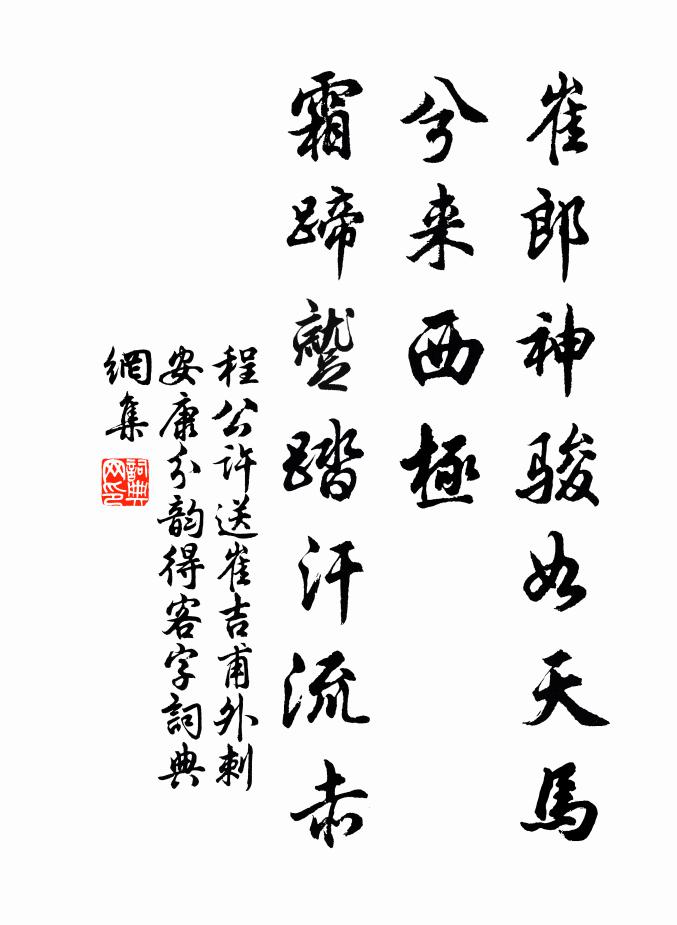 崔郎神骏如天馬
兮来西極
霜蹄蹔踏汗流赤
程公許送崔吉甫外刺
安康分韵得客字詞典
網集
詞典網印